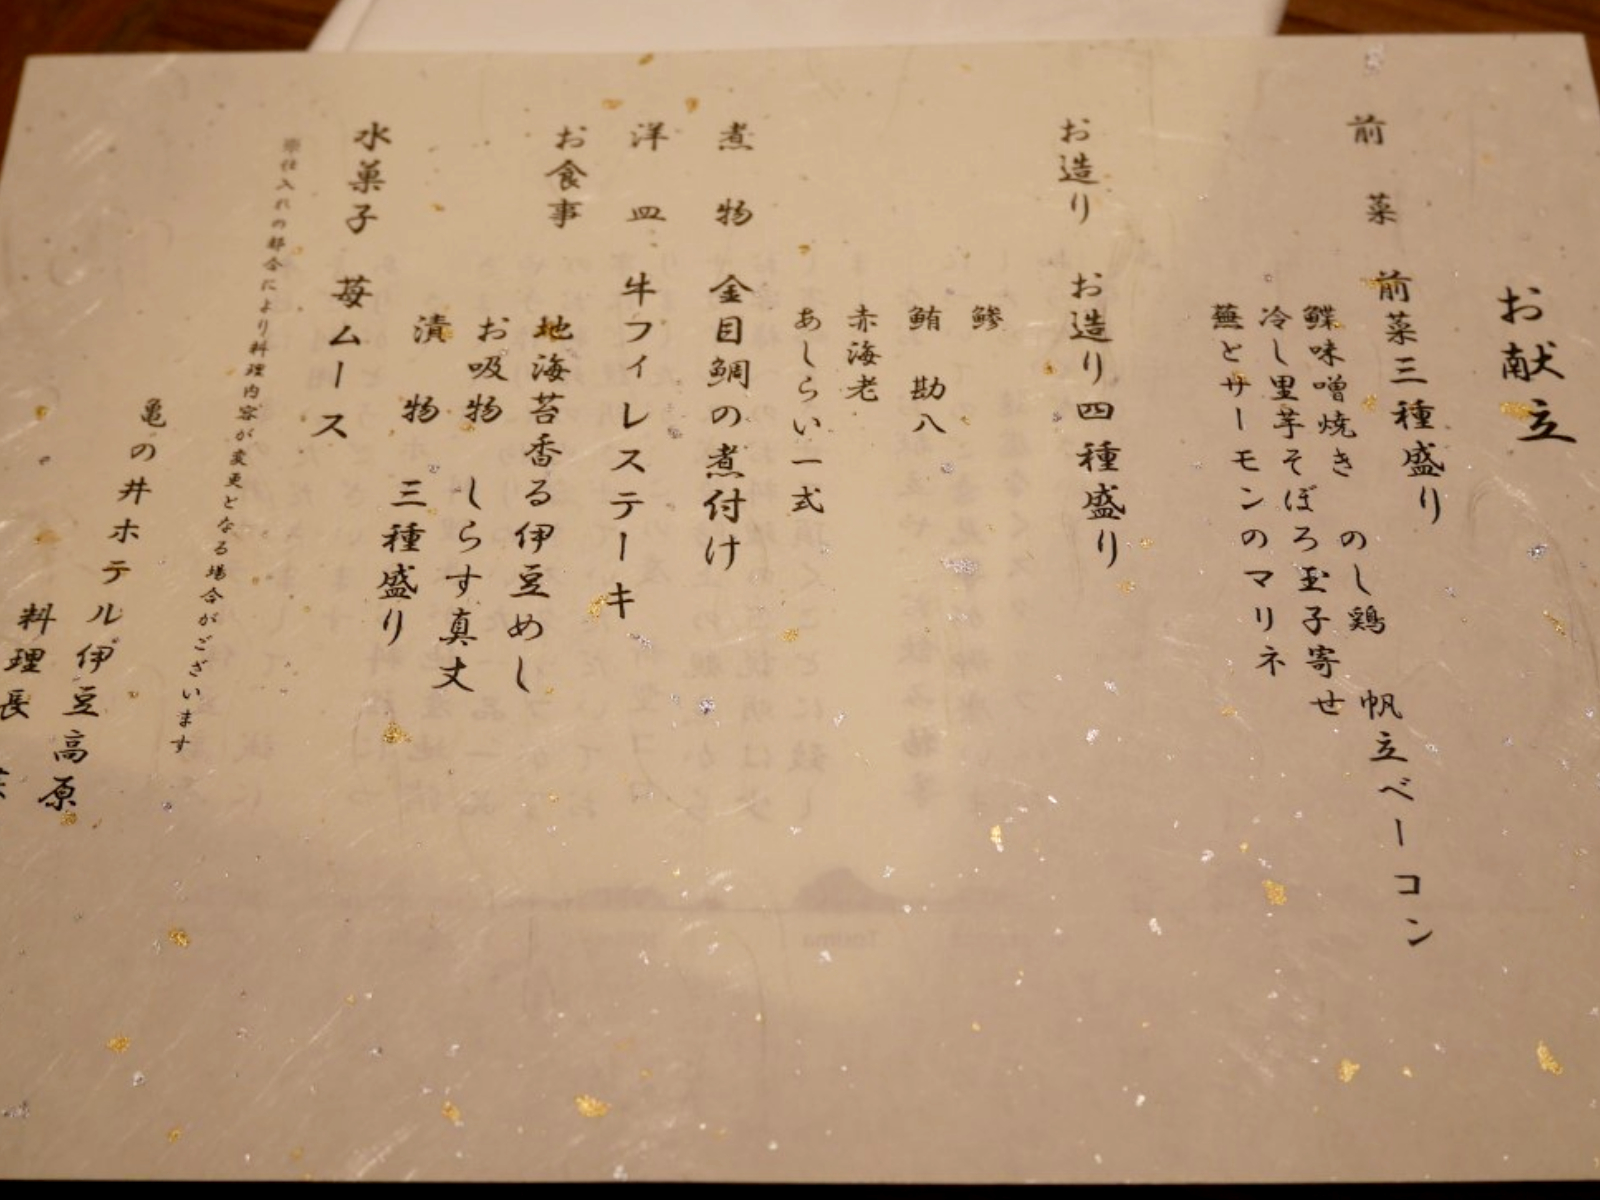 お献立
前菜 前菜三種盛り
鰈味噌焼き のし鶏 帆立ベーコン
冷し里芋そぼろ玉子寄せ
蕪とサーモンのマリネ
お造り お造り四種盛り
鰺
鮪 勘八
赤海老
あしらい一式
煮物 金目鯛の煮付け
洋皿 牛フィレステーキ
お食事 地海苔香る伊豆めし
お吸物 しらす真丈
漬物 三種盛り
水菓子 苺ムース
※仕入れの都合により料理内容が変更となる場合がございます
亀の井ホテル伊豆高原
料理長